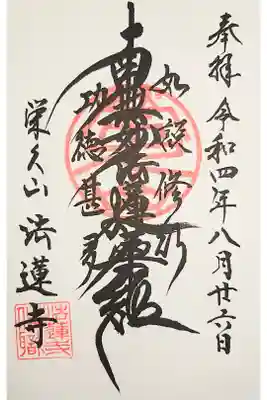 奉拝 令和四年八月廿六日
如説修行
南無妙法蓮華経
功徳甚多
栄久山 法蓮寺